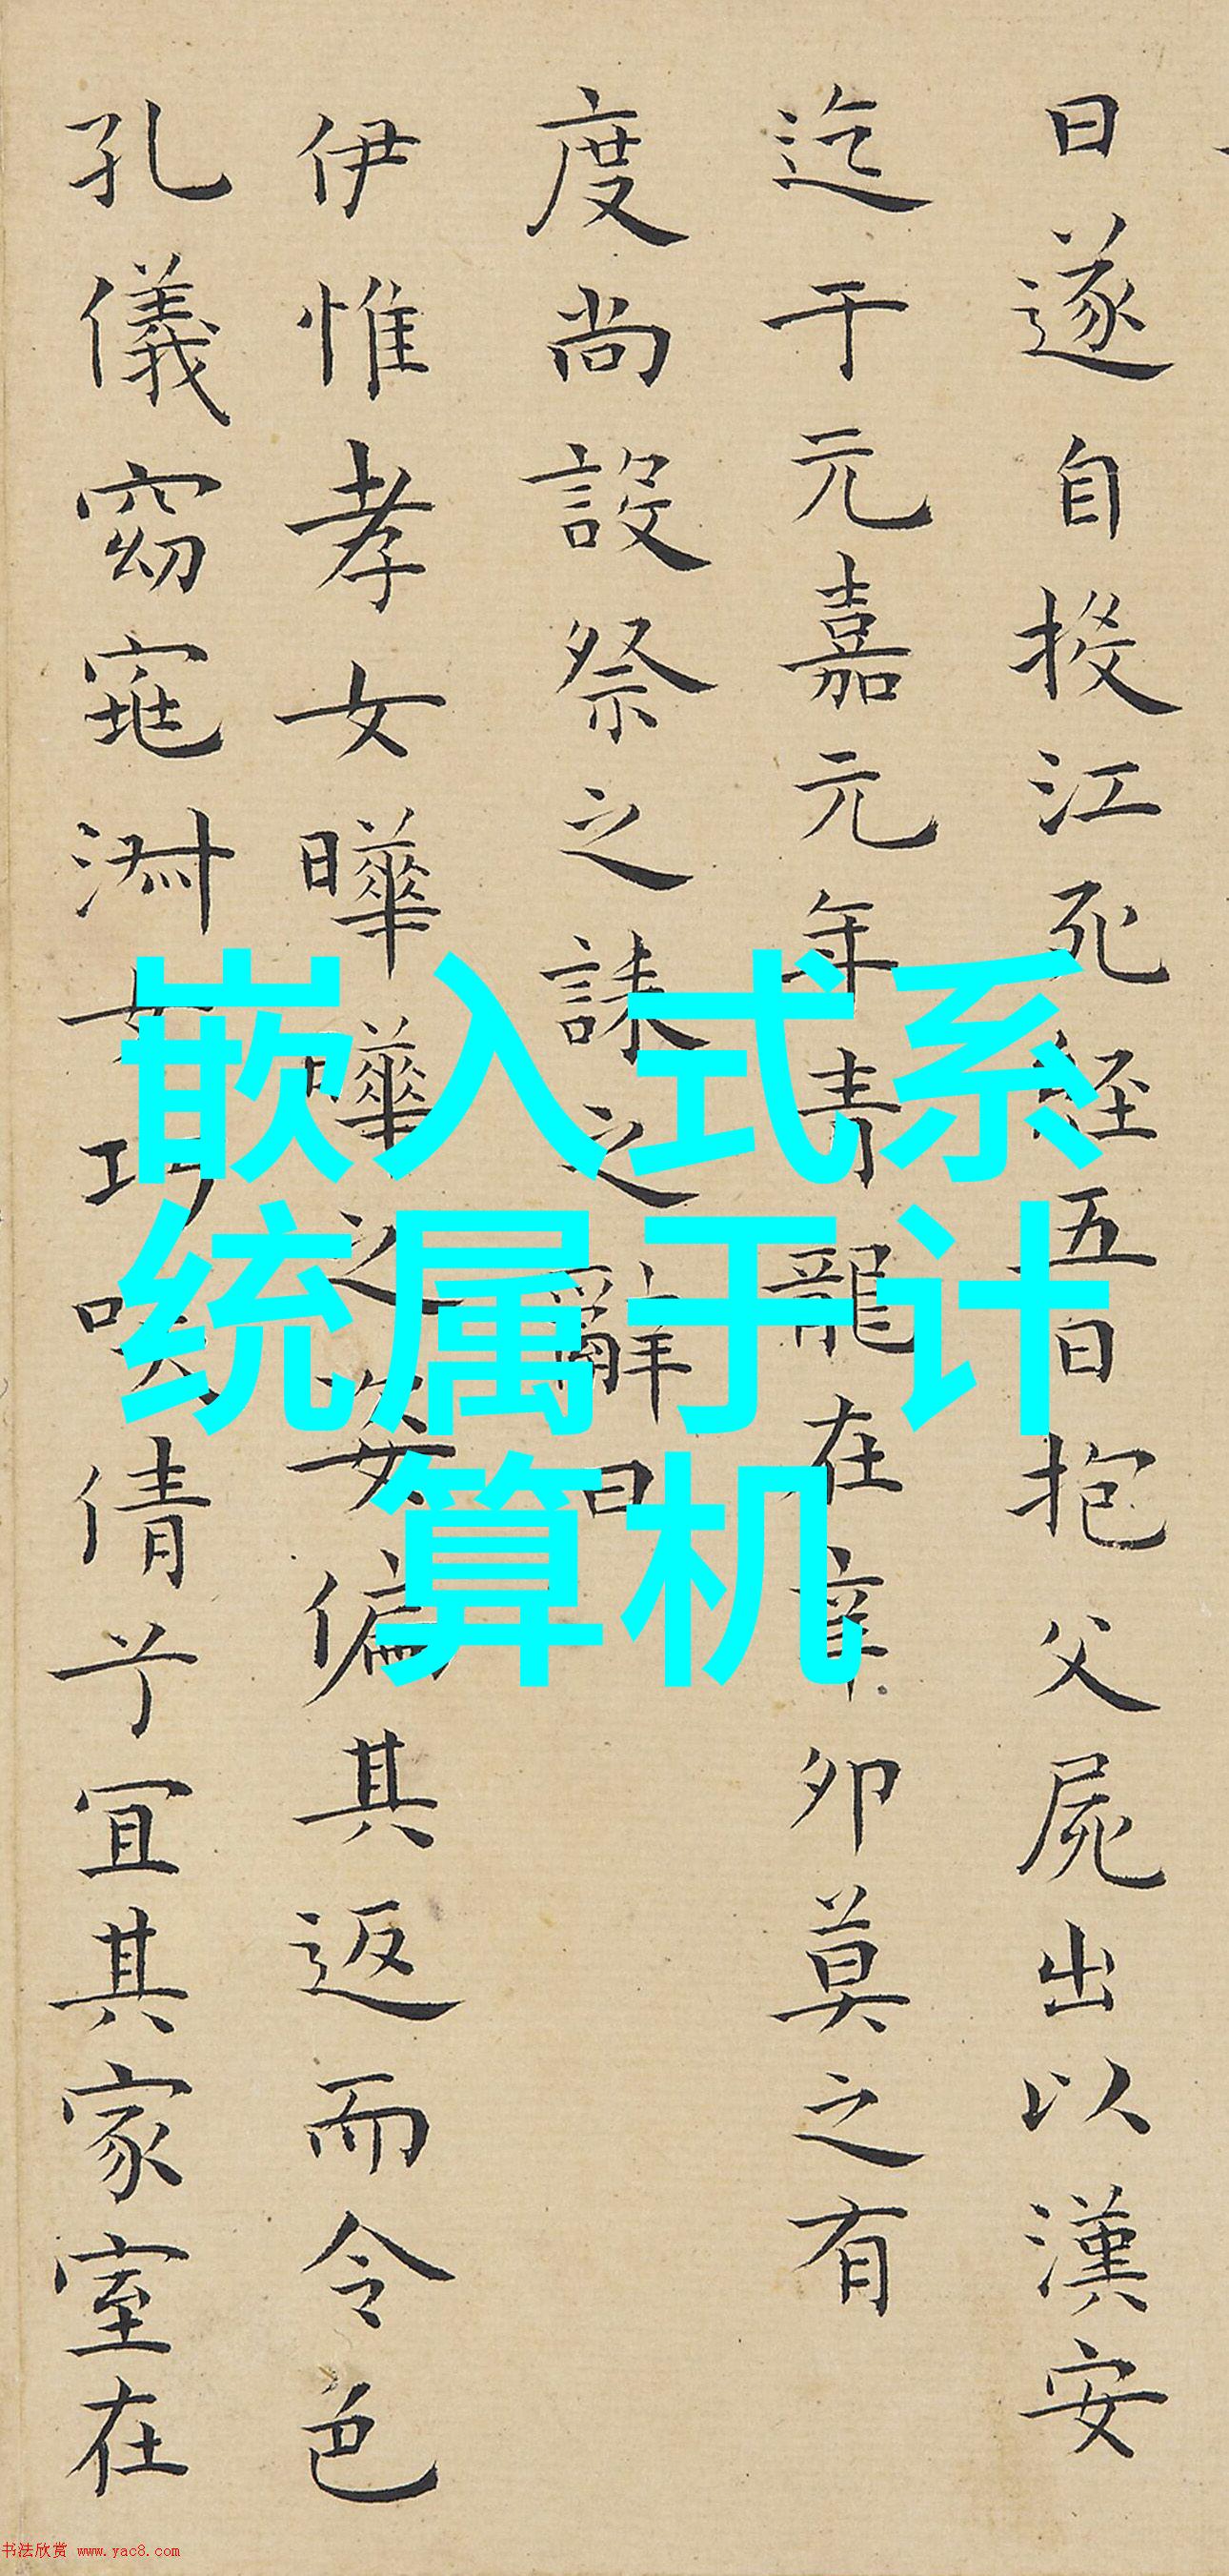 日遂自投江死經五日抱父屍出以漢安
迄于元嘉元年青龍在辛卯莫之有
度尚設祭之誄之辭曰
伊惟孝女曄曄之姿偏其返而令色
孔儀窈窕淑女巧笑倩兮宜其家室在
嵌入式系
统属于计
算机
书法欣赏 www.yac8.com